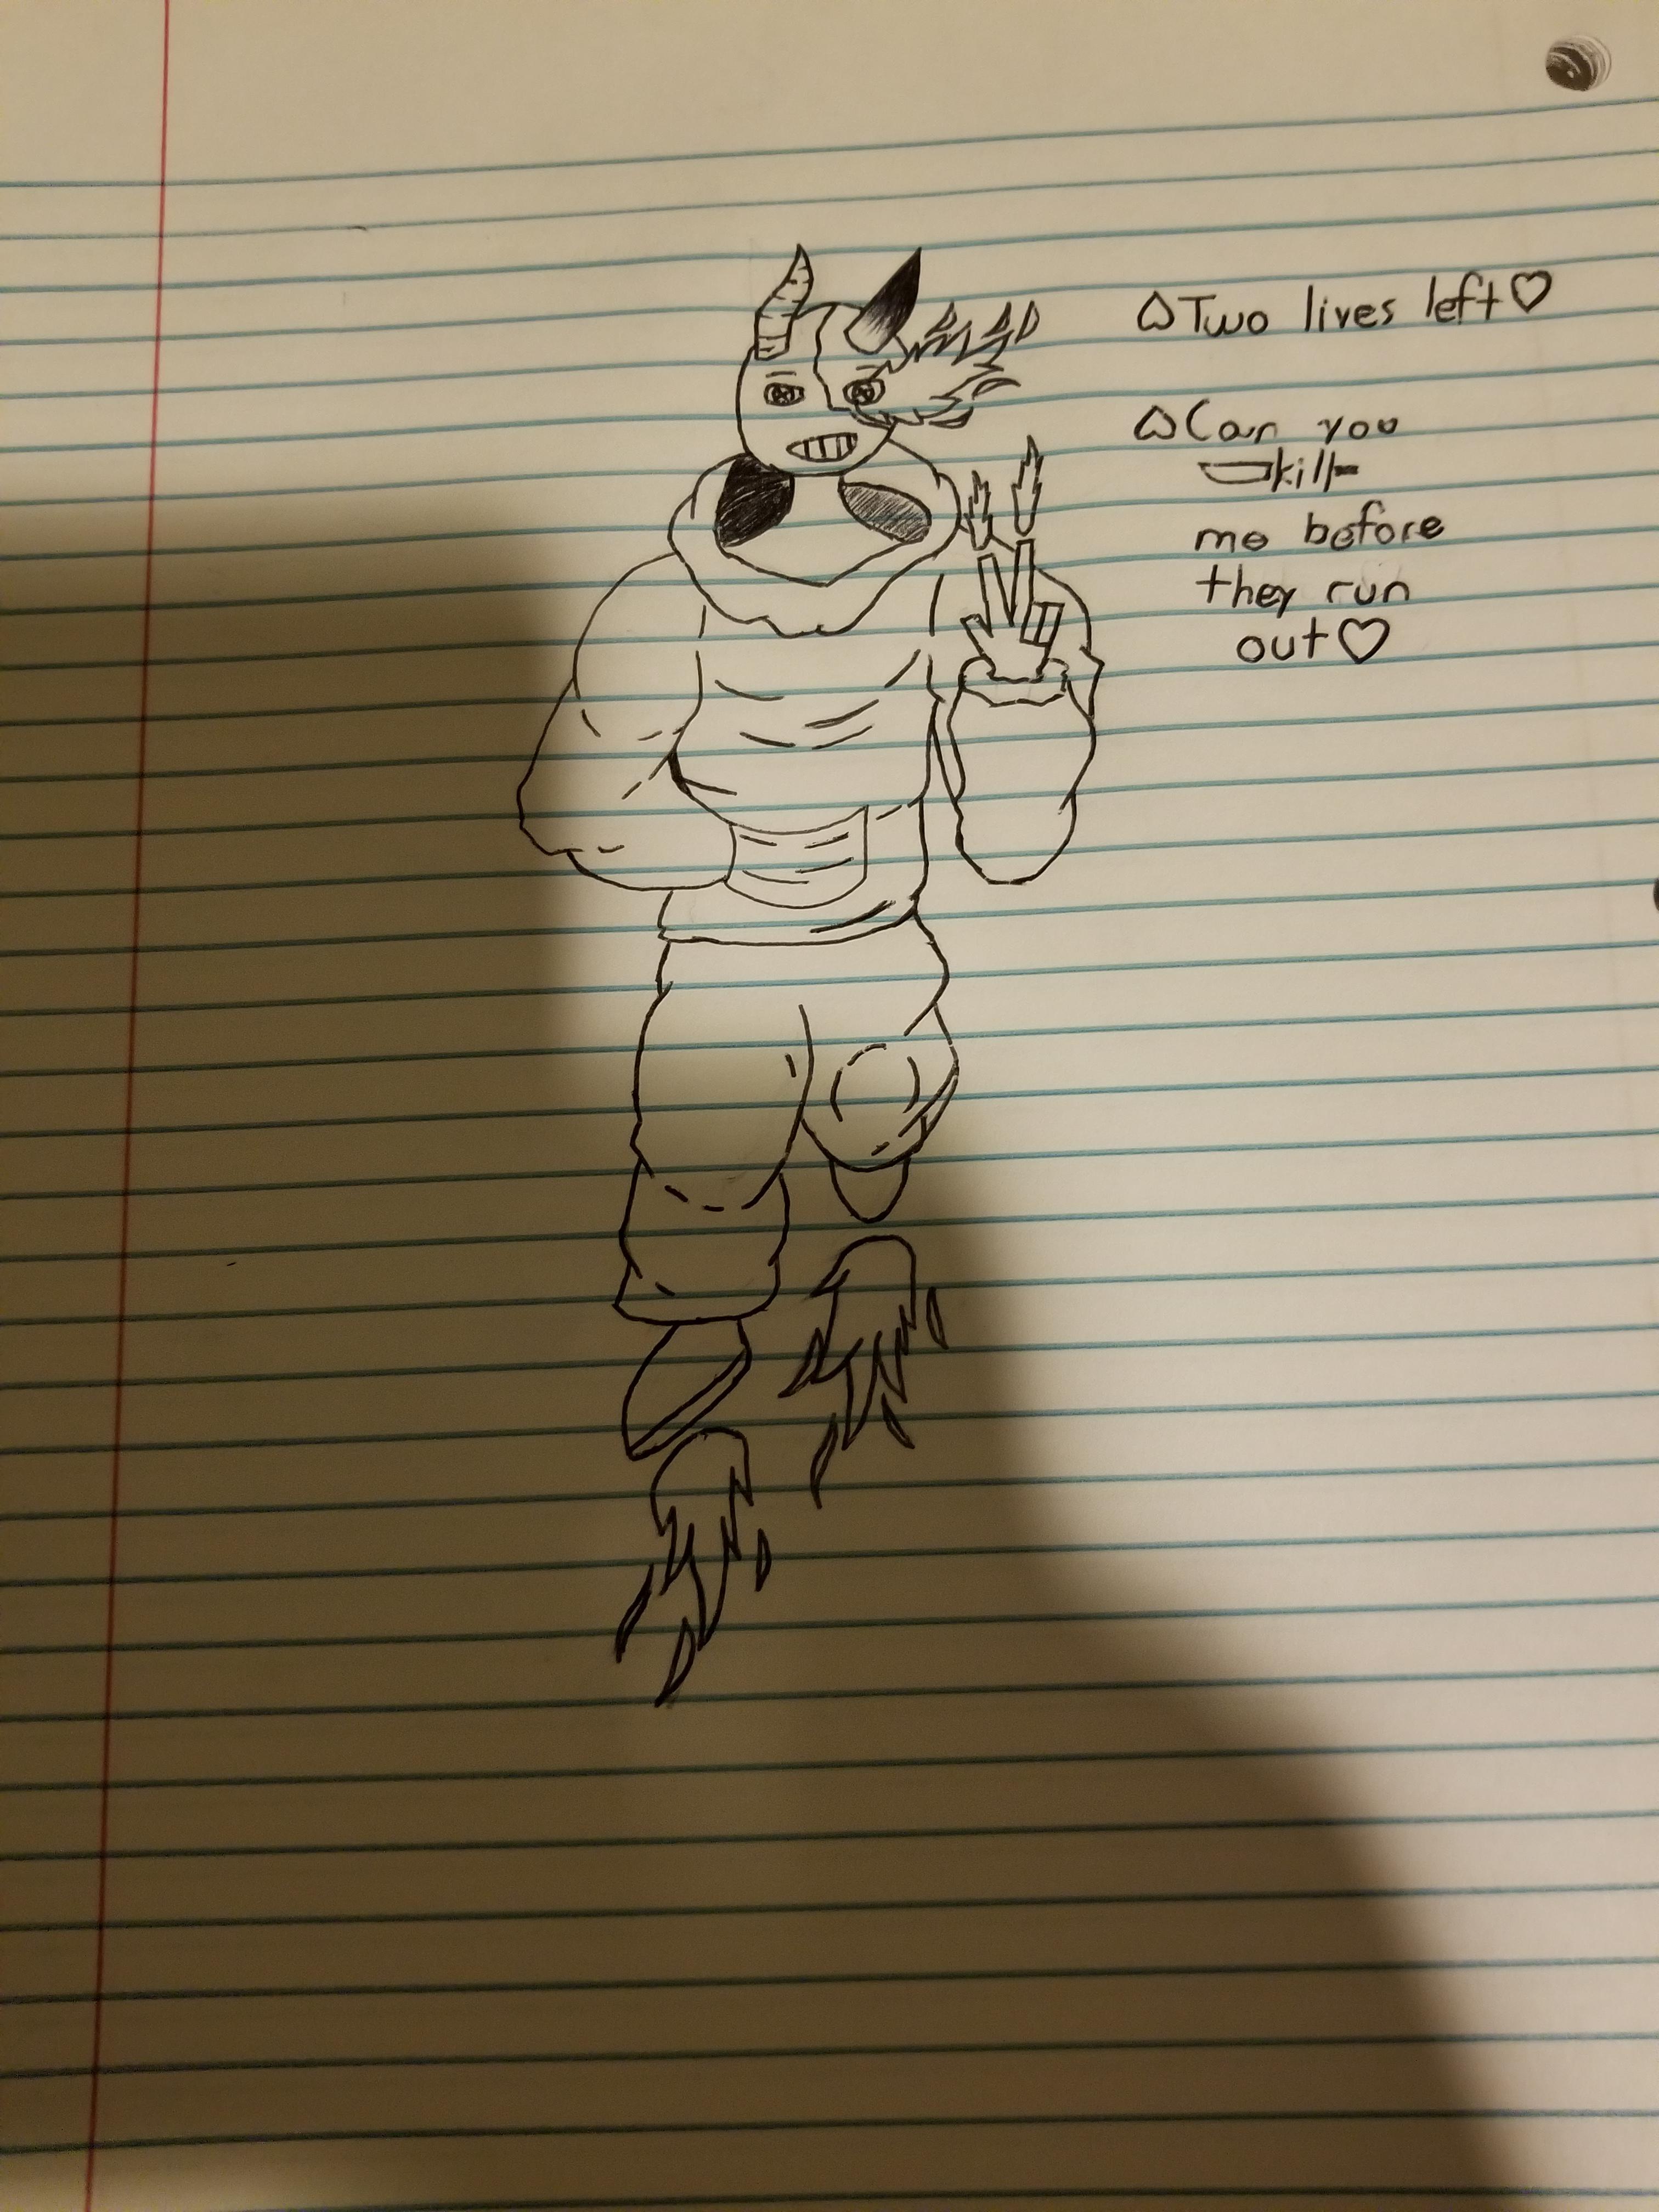 ♤Two lives left♡
♤Can you
kill
me before
they run
out♡